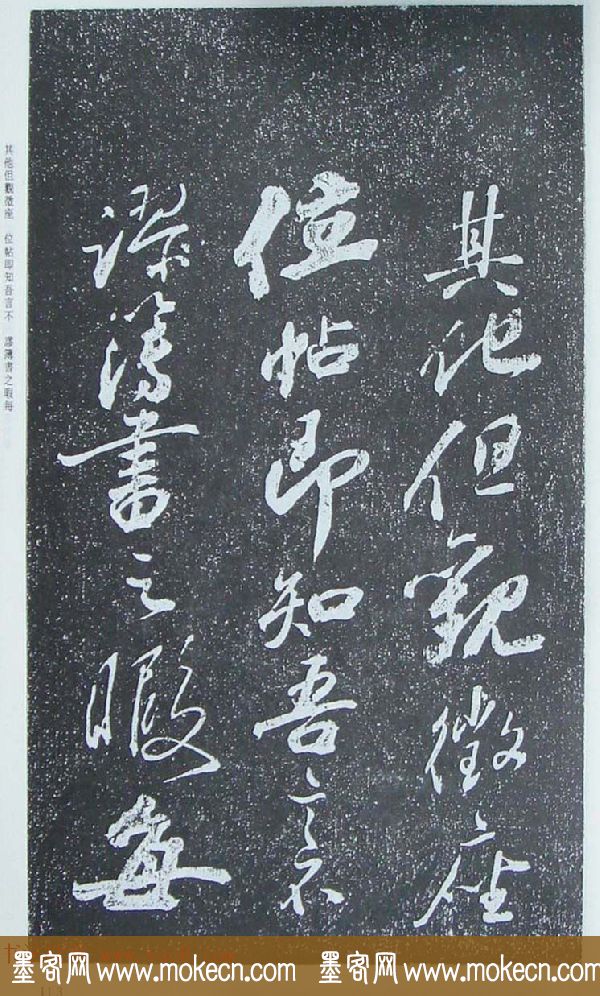 其他但觀徵座
位帖即知吾言不
謬簿書之暇每
其他但觀徵座 位帖即知吾言不 謬簿書之暇每
墨客网 www.mokecn.com 墨客网 www.mokecn.com
113